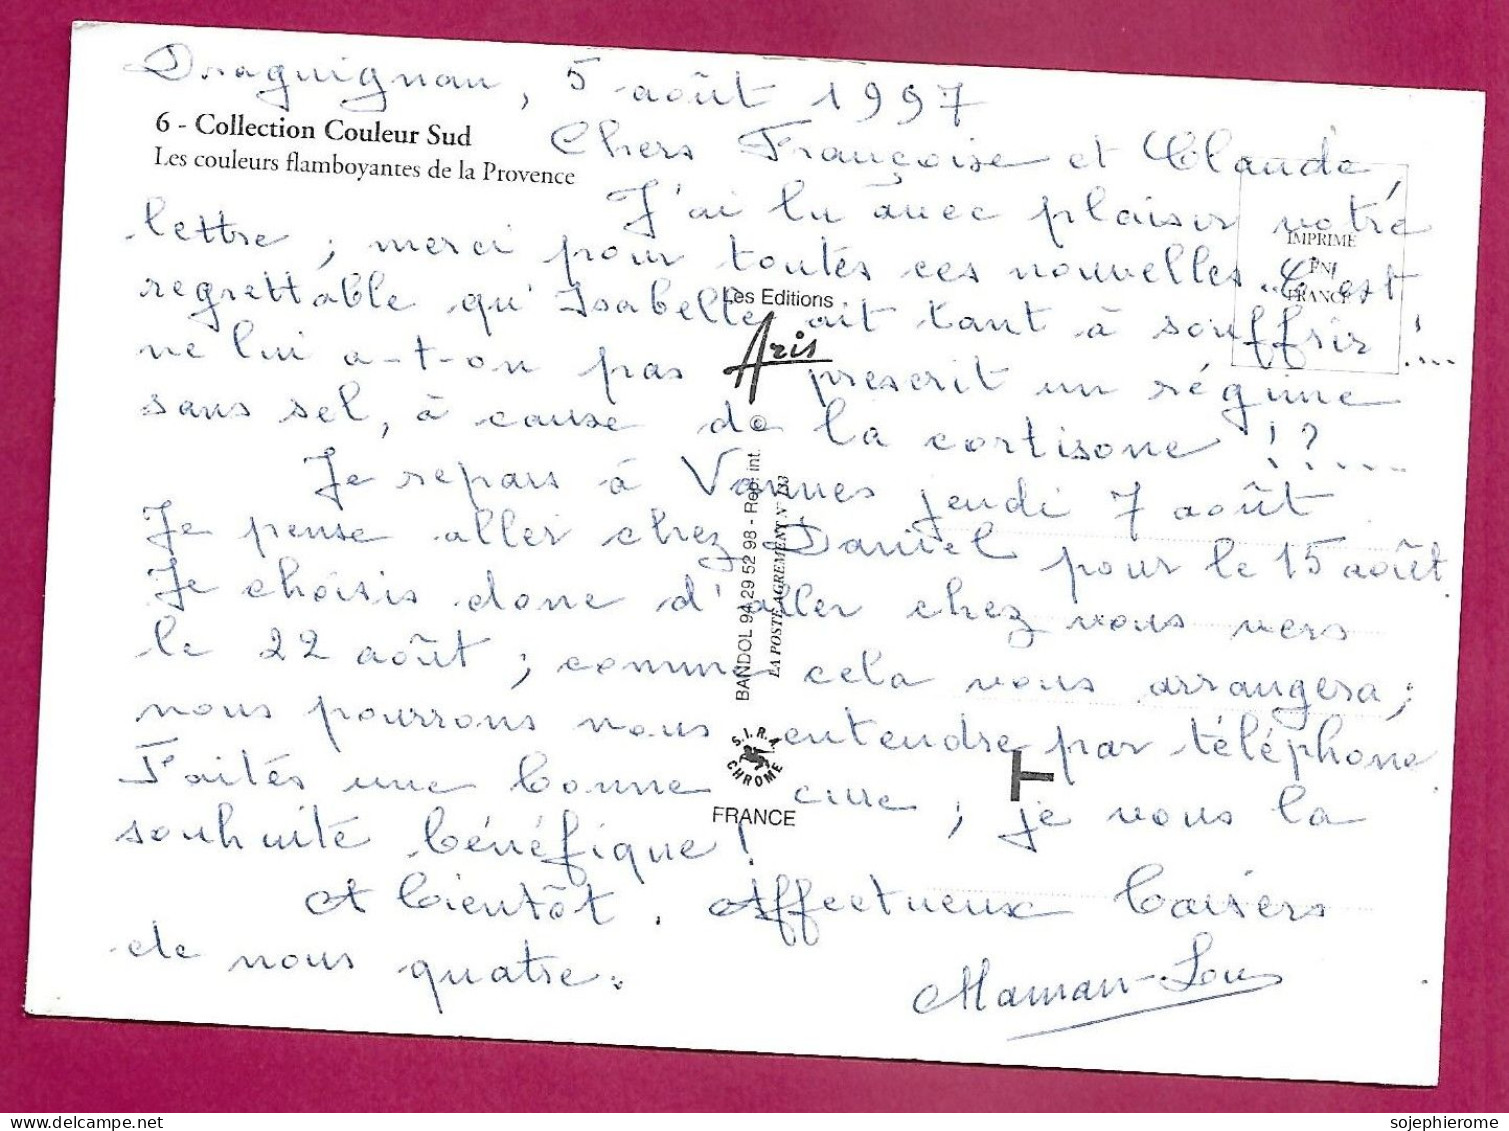 Draguignan, 5 août 1997
6 - Collection Couleur Sud
Les couleurs flamboyantes de la Provence
Chers Françoise et Claude,
J'ai lu avec plaisir votre
lettre ; merci pour toutes ces nouvelles. C'est
regrettable qu'Isabelle ait tant à souffrir !...
ne lui a-t-on pas prescrit un régime
sans sel, à cause de la cortisone !?....
Je repars à Vannes jeudi 7 août
Je pense aller chez Daniel pour le 15 août.
Je choisis donc d'aller chez vous vers
le 22 août ; comme cela vous arrangera ;
nous pourrons nous entendre par téléphone
Faites une bonne cure ; je vous la
souhaite bénéfique !
A bientôt. Affectueux baisers
de nous quatre.
Maman-Lou
IMPRIMÉ
EN
FRANCE
Les Editions
Aris
©
BANDOL 94 29 52 98 - Rep. int.
LA POSTE AGREMENT N° 133
S.I.R.A.
CHROME
FRANCE
sojephierome